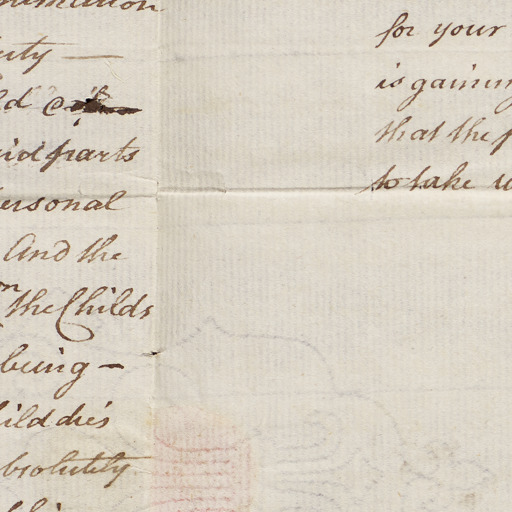 uty —
ld
id parts
ersonal
And the
on the Childs
being —
ild dies
bsolutely
for your
is gaining
that the
to take